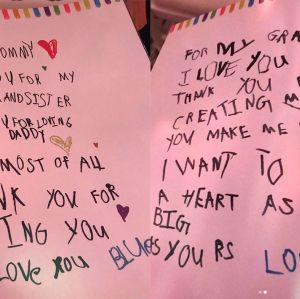 OMMY
U FOR MY
ANDSISTER
U FOR LOVING
DADDY
MOST OF ALL
NK YOU FOR
ING YOU
LOVE YOU BLUE
FOR MY GRA
I LOVE YOU
THNK YOU
CREATING M
YOU MAKE ME
I WANT TO
A HEART AS
BIG
AS YOURS LO